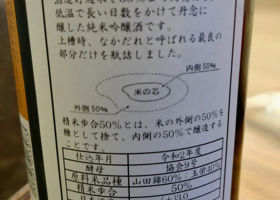 低温で長い日数をかけて丹念に
醸した純米吟醸酒です。
上槽時、なかだれと呼ばれる最良の
部分だけを瓶詰しました。
内側50%
米の芯
外側50%
精米歩合50%とは、米の外側の50%を
糠として捨て、内側の50%で醸造する
ことです。
仕込年月 令和2年度
酵母 協会9号
原料米品種 山田錦60%:玉栄40%
精米歩合 50%